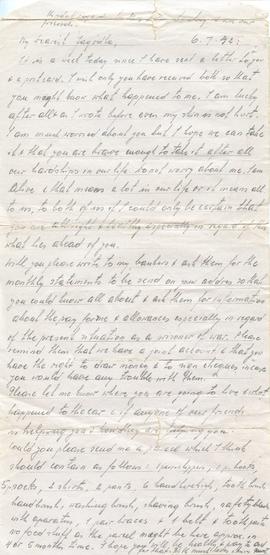 friends.
My dearest 6.7.42.
It is a week today since I have sent a letter to you
& a postcard. I wish only you have received both so that
you might know what happened to me. I am lucky
after all as I wrote before even my skin is not hurt.
I am much worried about you but I hope we can take
it & that you are brave enough to take it after all
our hardships in our life. Do not worry about me. I am
alive & that means a lot in our life or it means all
to us, to both of us if I could only be certain that
you are allright & healthy especially in regard of this
what lies ahead of you.
Will you please write to my bankers & ask them for the
monthly statements to be send on your address so that
you could know all about & ask them for information
about the pay for me & allowances especially in regard
of the present situation as a prisoner of war. Please
remind them that we have a joint account & that you
have the right to draw money & to sign cheques in case
you would have any trouble with them.
Please let me know where you are going to live & what
happened to the car & if anyone of our friends
is helping you & how they are helping you.
Could you please send me a parcel which I think
should contain as follows: 2 pyjamas, 2 books,
5 p socks, 2 shirts, 2 pants, 6 handkerchiefs, tooth brush,
hand brush, washing brush, shaving brush, safety blades
with aparatus, 1 pair braces & 1 belt & tooth paste
no food stuff as the parcel might be here approx. in
4 or 5 months time. I hope you will be healthy